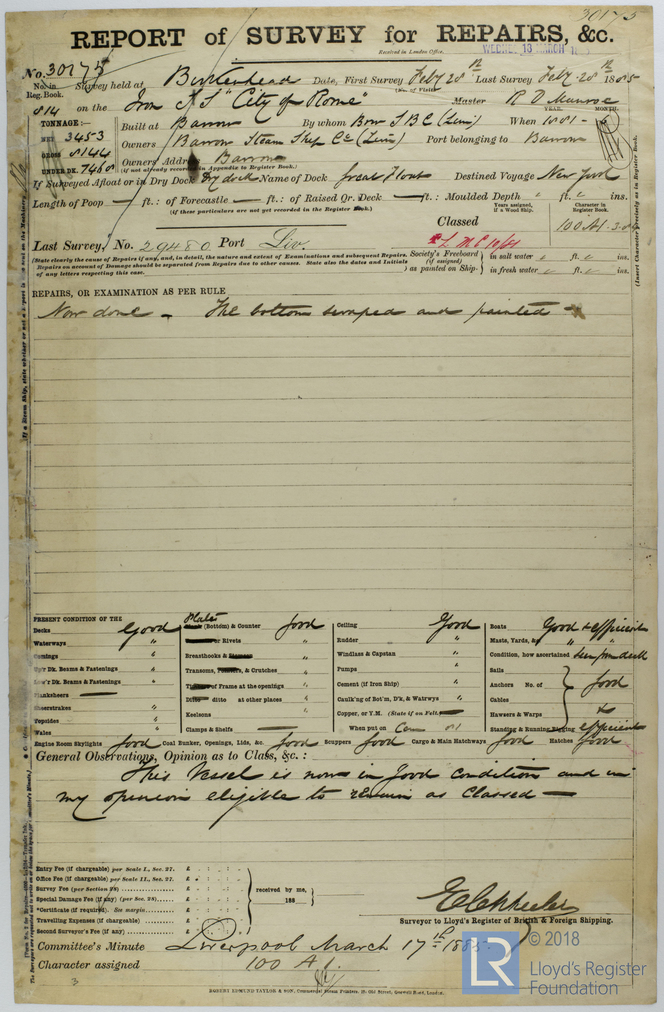 30175
REPORT of SURVEY for REPAIRS, &c.
Received in London Office. WEDNES. 18 MARCH
No. 30175
No. in Reg. Book.
Survey held at Birkenhead Date, First Survey Feby 28th Last Survey Feby 28th 1885
(No. of Visits
814 on the Iron S S "City of Rome" Master R D Munroe
TONNAGE:—
NET 3453
GROSS 8144
UNDER DK. 7468
Built at Barrow By whom Bow S B C (Lim) When 1881 - 6
YEAR. MONTH.
Owners Barrow Steam Ship Co (Lim) Port belonging to Barrow
Owners' Address Barrow
(if not already recorded in Appendix to Register Book.)
If Surveyed Afloat or in Dry Dock Dry dock Name of Dock Great Float Destined Voyage New York
Length of Poop — ft.: of Forecastle — ft.: of Raised Qr. Deck — ft.: Moulded Depth " ft. " ins.
(if these particulars are not yet recorded in the Register Book.)
Years assigned, if a Wood Ship.
Character in Register Book.
Classed 100 A1 - 3.84
Last Survey, No. 29480 Port Liv. L.M.C 10/84
(State clearly the cause of Repairs if any, and, in detail, the nature and extent of Examinations and subsequent Repairs.
Repairs on account of Damage should be separated from Repairs due to other causes. State also the dates and Initials
of any letters respecting this case.)
Society's Freeboard (if assigned) as painted on Ship-
in salt water " ft. " ins.
in fresh water " ft. " ins.
(Insert Character precisely as in Register Book.
REPAIRS, OR EXAMINATION AS PER RULE
Now done — The bottom scraped and painted
PRESENT CONDITION OF THE
Decks Good
Waterways "
Comings "
Up'r Dk. Beams & Fastenings "
Low'r Dk. Beams & Fastenings "
Planksheers —
Sheerstrakes "
Topsides "
Wales "
Plate (Bottom) & Counter Good
or Rivets "
Breasthooks & "
Transoms, Pointers, & Crutches "
of Frame at the openings "
Ditto ditto at other places "
Keelsons "
Clamps & Shelfs —
Ceiling Good
Rudder "
Windlass & Capstan "
Pumps "
Cement (if Iron Ship) "
Caulk'ng of Bot'm, D'k, & Watrwys "
Copper, or Y.M. (State if on Felt. —
When put on
Boats Good & efficient
Masts, Yards, &c. "
Condition, how ascertained
Sails
Anchors No. of
Cables
Hawsers & Warps
Standing & Running Rigging
Good & efficient
Engine Room Skylights Good Coal Bunker, Openings, Lids, &c. Good Scuppers Good Cargo & Main Hatchways Good Hatches Good
General Observations, Opinion as to Class, &c.:
This Vessel is now in good condition and in
my opinion eligible to remain as classed —
Entry Fee (if chargeable) per Scale I., Sec. 27. £ : :
Office Fee (if chargeable) per Scale II., Sec. 27. £ : :
Survey Fee (per Section 28) £ : :
Special Damage Fee (if any) (per Sec. 28) £ : :
*Certificate (if required). See margin £ : :
Travelling Expenses (if chargeable) £ : :
Second Surveyor's Fee (if any) £ : :
received by me,
188
Surveyor to Lloyd's Register of British & Foreign Shipping.
Committee's Minute Liverpool March 17th 1885
Character assigned 100 A1.
3
ROBERT EDMUND TAYLOR & SON, Commercial Steam Printers, 19, Old Street, Goswell Road, London.
© 2018
LR
Lloyd's Register
Foundation